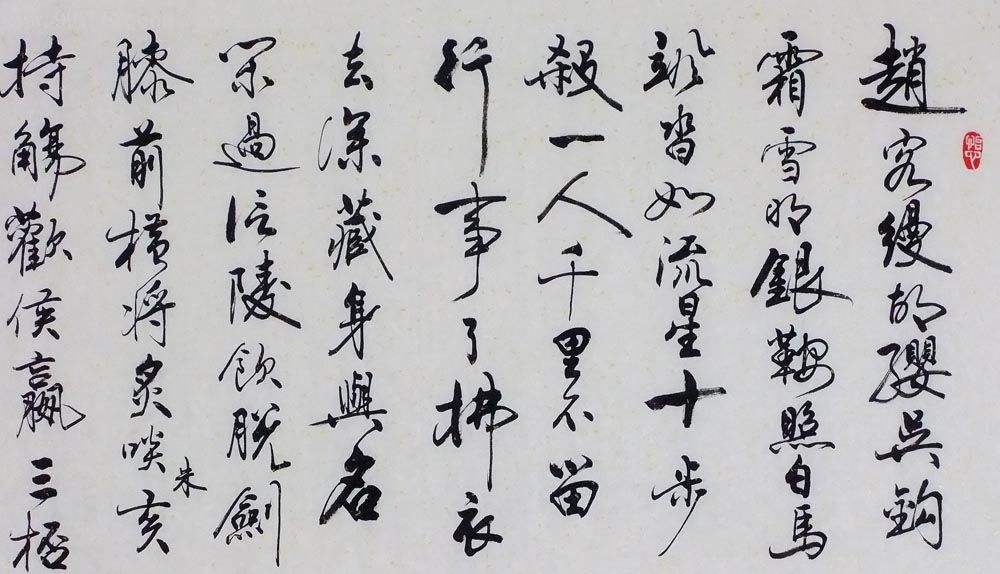 趙客縵胡纓吳鉤
霜雪明銀鞍照白馬
颯沓如流星十步
殺一人千里不留
行事了拂衣
去深藏身與名
閑過信陵飲脫劍
膝前橫將炙啖朱亥
持觴歡侯嬴三杯